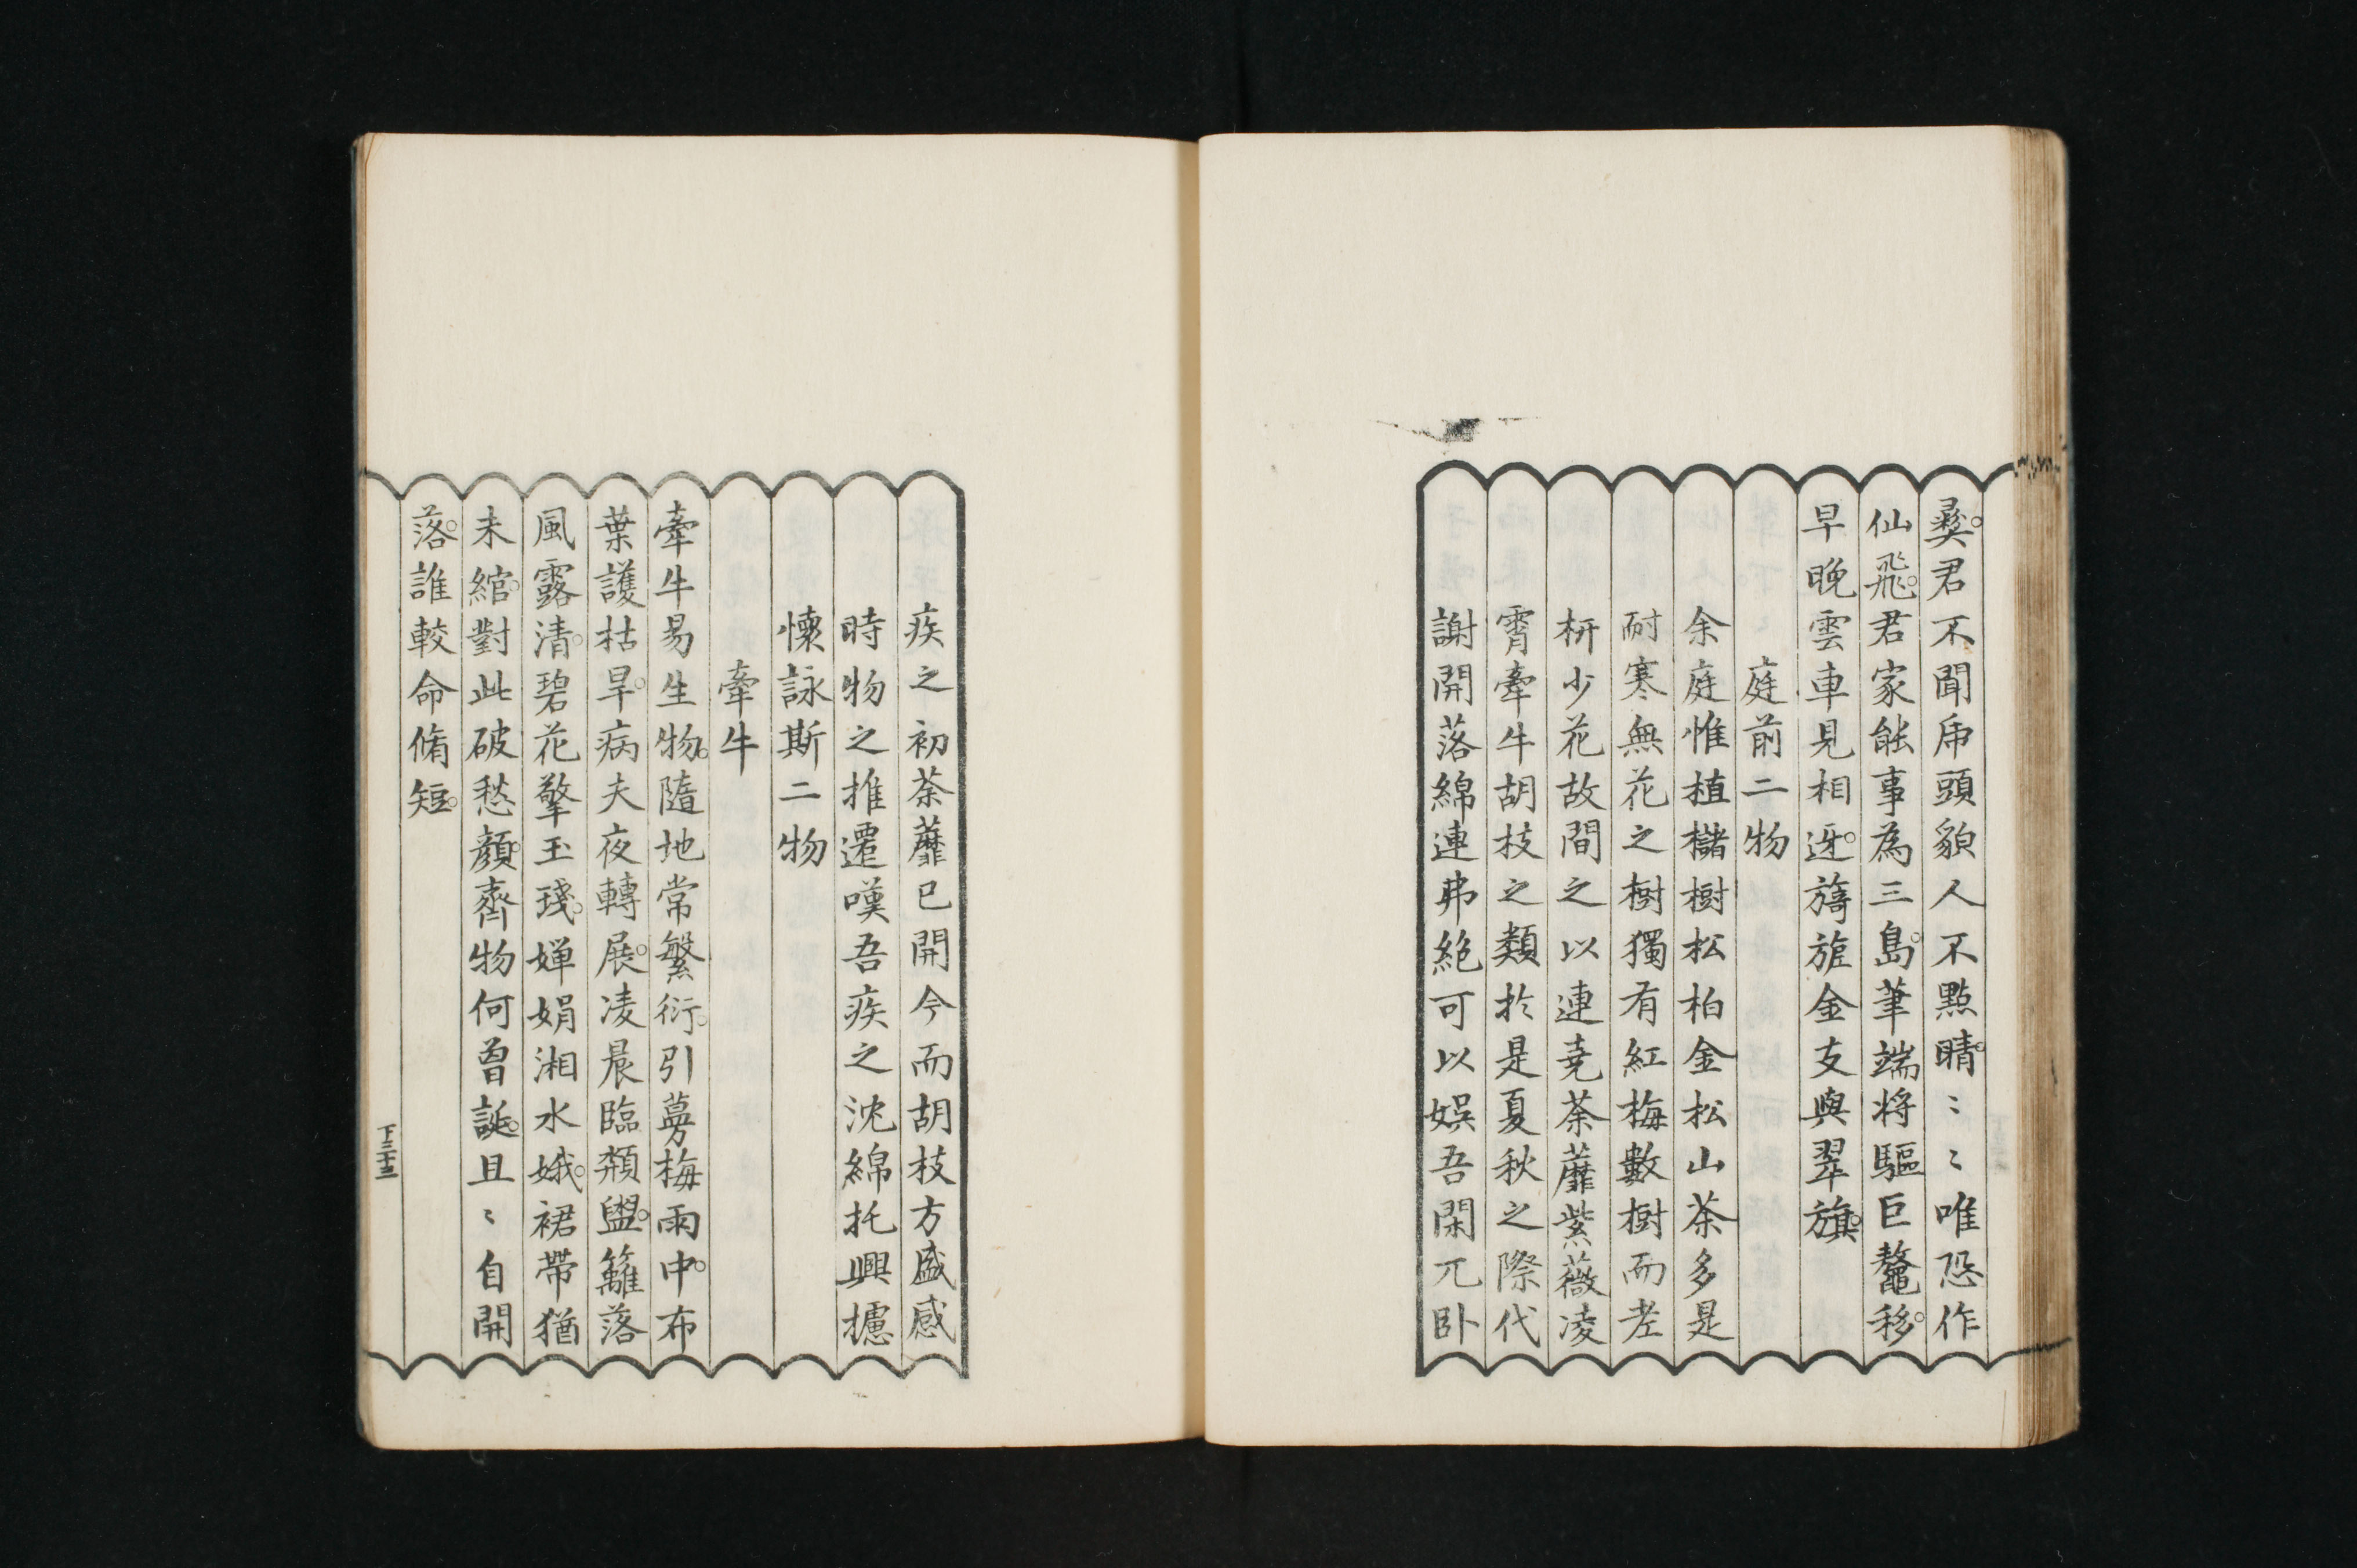 彛。君不聞帍頭貌人不點睛。〻〻唯恐作
仙飛。君家能事為三島。筆端将驅巨鼇移。
早晚雲車見相迓。旖旎金支與翠旗。
庭前二物
余庭惟植櫧樹松柏金松山茶多是
耐寒無花之樹獨有紅梅數樹而老
枿少花故間之以連尭荼蘼紫薇凌
霄牽牛胡枝之類扵是夏秋之際代
謝開落綿連弗絕可以娯吾閑兀卧
疾之初荼蘼已開今而胡枝方盛感
時物之推遷嘆吾疾之沈綿托興攄
懷詠斯二物
牽牛
牽牛易生物。隨地常繁衍。引蔓梅雨中。布
葉護枯旱。病夫夜轉展。凌晨臨頮盥。籬落
風露清。碧花擎玉琖。嬋娟湘水娥。裙帶猶
未綰。對此破愁顏。齊物何曾誕。且〻自開
落。誰較命脩短。
下三十三